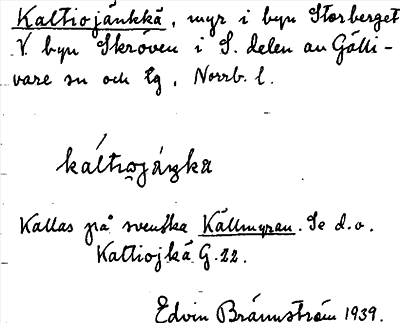 Kaltiojänkkä, myr i byn Storberget
V. byn Skröven i S. delen av Gälli-
vare sn och lg, Norrb. l.
káltiojäŋka
Kallas på svenska Källmyran. Se d.o.
Kaltiojkä G.22.
Edvin Brännström 1939.